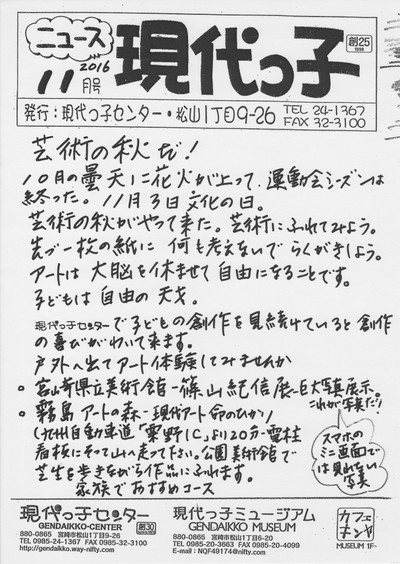 ニュース
現代っ子
創25
1998
2016
11月号
発行:現代っ子センター・松山1丁目9-26
TEL 24-1367
FAX 32-3100
芸術の秋だ!
10月の曇天に花火が上って、運動会シーズンは
終った。11月3日文化の日。
芸術の秋がやって来た。芸術にふれてみよう。
先づ一枚の紙に 何も考えないで らくがきしよう。
アートは 大脳を休ませて 自由になることです。
子どもは 自由の天才。
現代っ子センターで子どもの創作を見続けていると 創作
の喜びがわいて来ます。
戸外へ出てアート体験してみませんか
宮崎県立美術館-篠山紀信展-巨大写真展示
これが写真だ!
霧島アートの森-現代アート 命のひかり
(九州自動車道「栗野IC」より20分-電柱
看板にそって山へ走って下さい。公園美術館で
芝生を歩きながら作品にふれます。
家族でおすすめコース
スマホの
ミニ画面で
は見れない
写真
現代っ子センター
GENDAIKKO-CENTER
創30
880-0865 宮崎市松山1丁目9-26
TEL 0985-24-1367 FAX 0985-32-3100
http://gendaikko.way-nifty.com/
現代っ子ミュージアム
GENDAIKKO MUSEUM
880-0865 宮崎市松山1丁目6-20
TEL 0985-20-3663 FAX 0985-20-4099
E-mail : NQF49174@nifty.com
カフェ
MUSEUM 1F